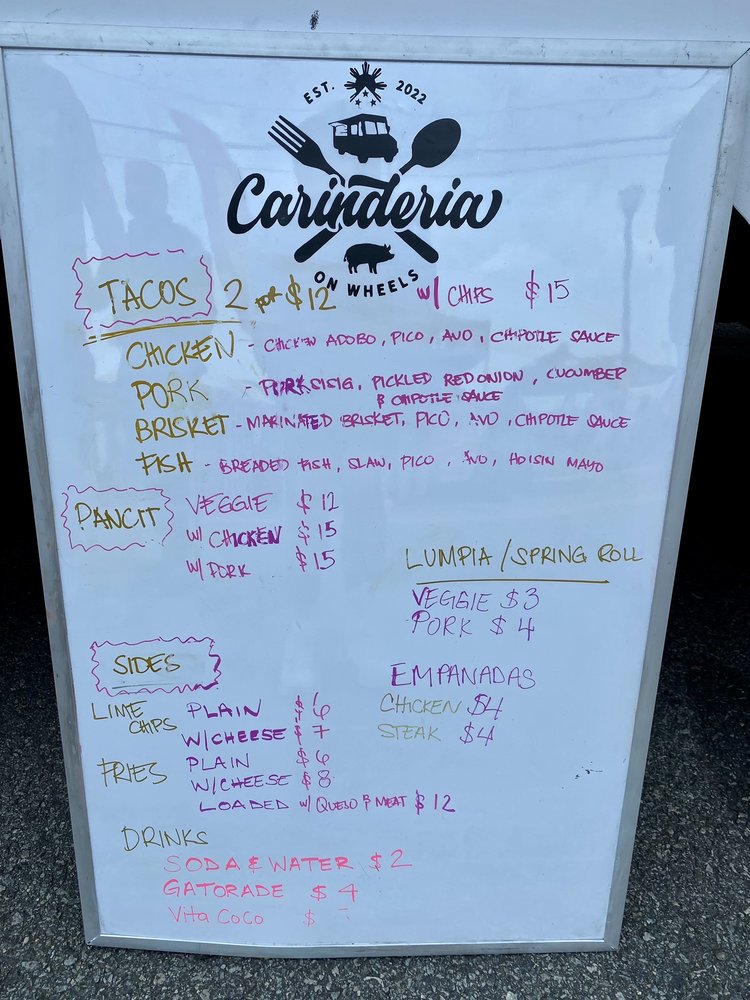 EST. 2022
Carinderia
ON WHEELS
TACOS 2 for $12 w/ CHIPS $15
CHICKEN - CHICK'N ADOBO, PICO, AVO, CHIPOTLE SAUCE
PORK - PORK SISIG, PICKLED RED ONION, CUCUMBER
& CHIPOTLE SAUCE
BRISKET - MARINATED BRISKET, PICO, AVO, CHIPOTLE SAUCE
FISH - BREADED FISH, SLAW, PICO, AVO, HOISIN MAYO
PANCIT VEGGIE $12
W/ CHICKEN $15
W/ PORK $15
LUMPIA / SPRING ROLL
VEGGIE $3
PORK $4
EMPANADAS
CHICKEN $4
STEAK $4
SIDES
LIME CHIPS PLAIN $6
W/CHEESE $7
FRIES PLAIN $6
W/CHEESE $8
LOADED W/ QUESO & MEAT $12
DRINKS
SODA & WATER $2
GATORADE $4
Vita CoCo $